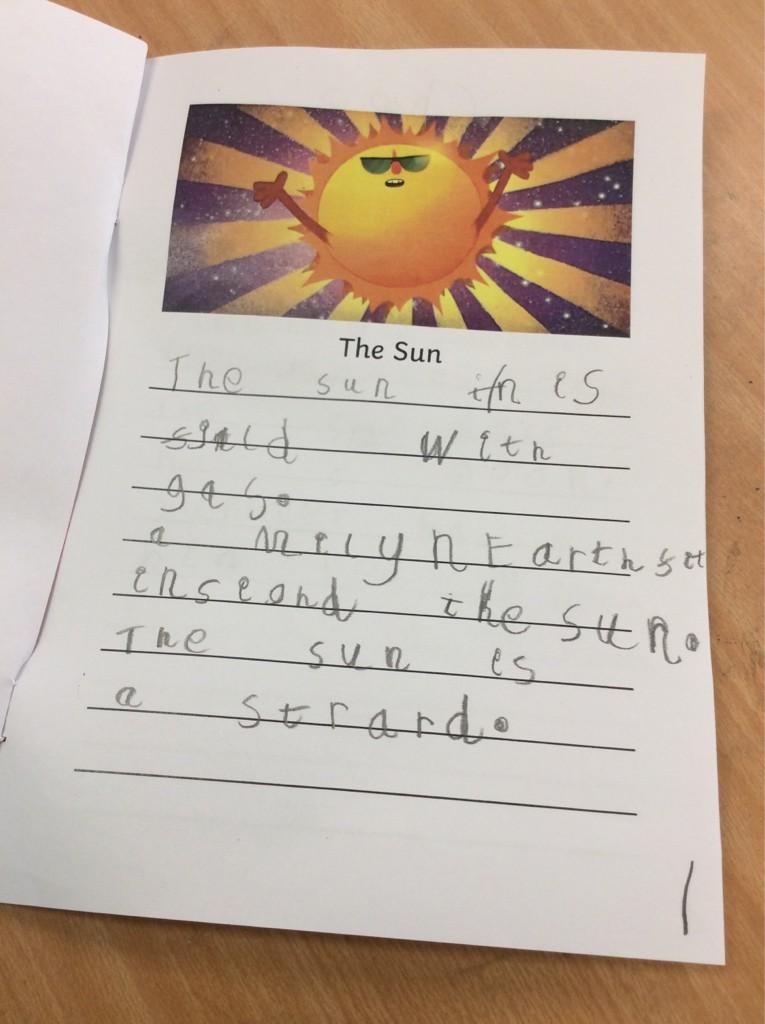 The Sun
The sun is
with
gas.
a milyn Earths
insed the sun.
The sun is
a strard.
1